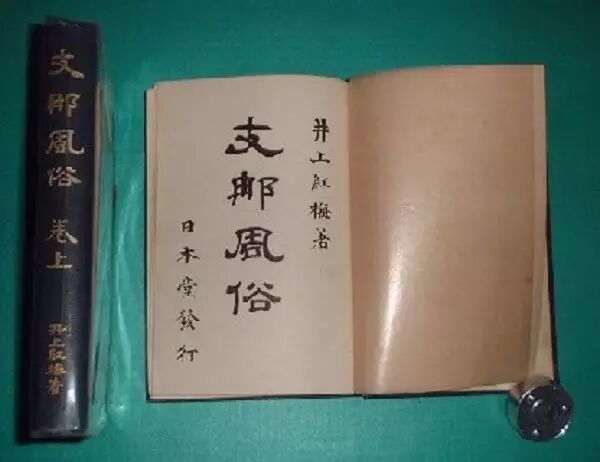 支那風俗 卷上
井上紅梅著
井上紅梅著
支那風俗
日本堂發行